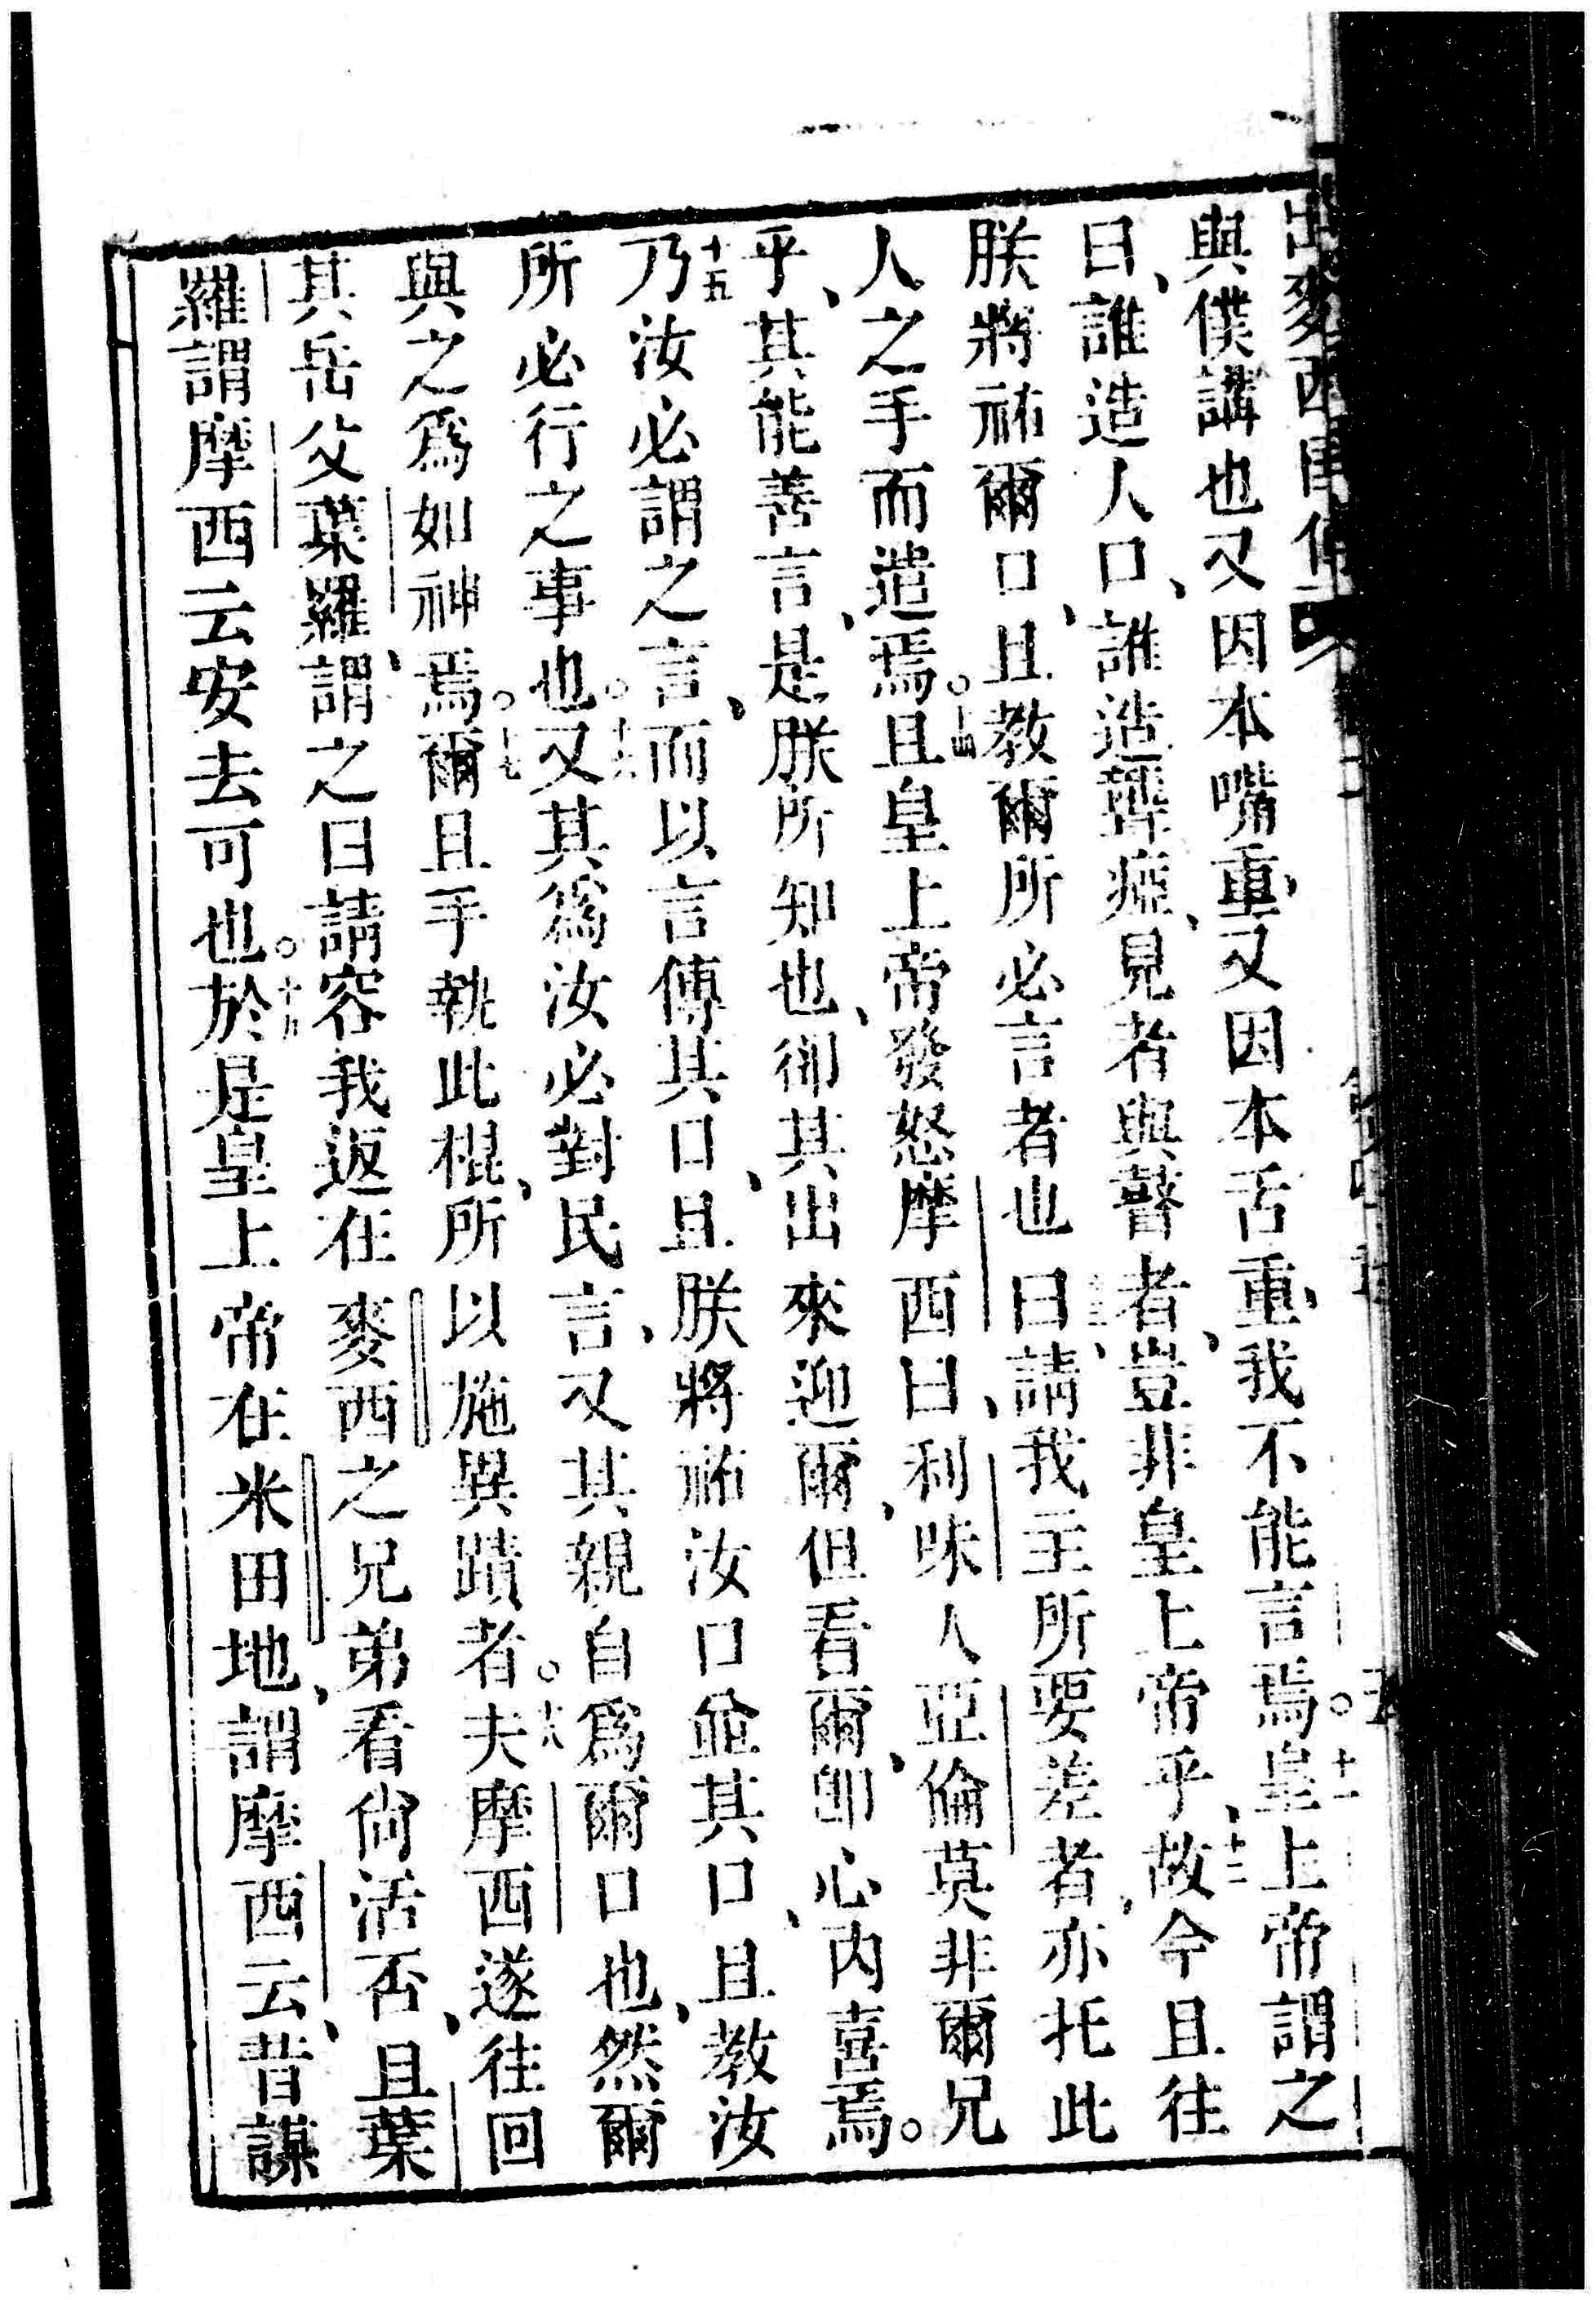 與僕講也又因本嘴重、又因本舌重、我不能言焉。十一皇上帝謂之
曰、誰造人口、誰造聾瘂、見者與瞽者、豈非皇上帝乎、十二故今且往
朕將祐爾口、且教爾所必言者也十三曰、請我主所要差者、亦托此
人之手而遣焉。十四且皇上帝發怒摩西曰、利味人亞倫莫非爾兄
乎、其能善言、是朕所知也、卻其出來迎爾、但看爾、卽心内喜焉。
十五乃汝必謂之言、而以言傳其口、且朕將祐汝口並其口、且教汝
所必行之事也。十六又其為汝必對民言、又其親自為爾口也、然爾
與之為如神焉。十七爾且手執此棍、所以施異蹟者。十八夫摩西遂往回
其岳父葉羅、謂之曰請容我返在麥西之兄弟看尙活否、且葉
羅謂摩西云安去可也。十九於是皇上帝在米田地、謂摩西云、昔謀